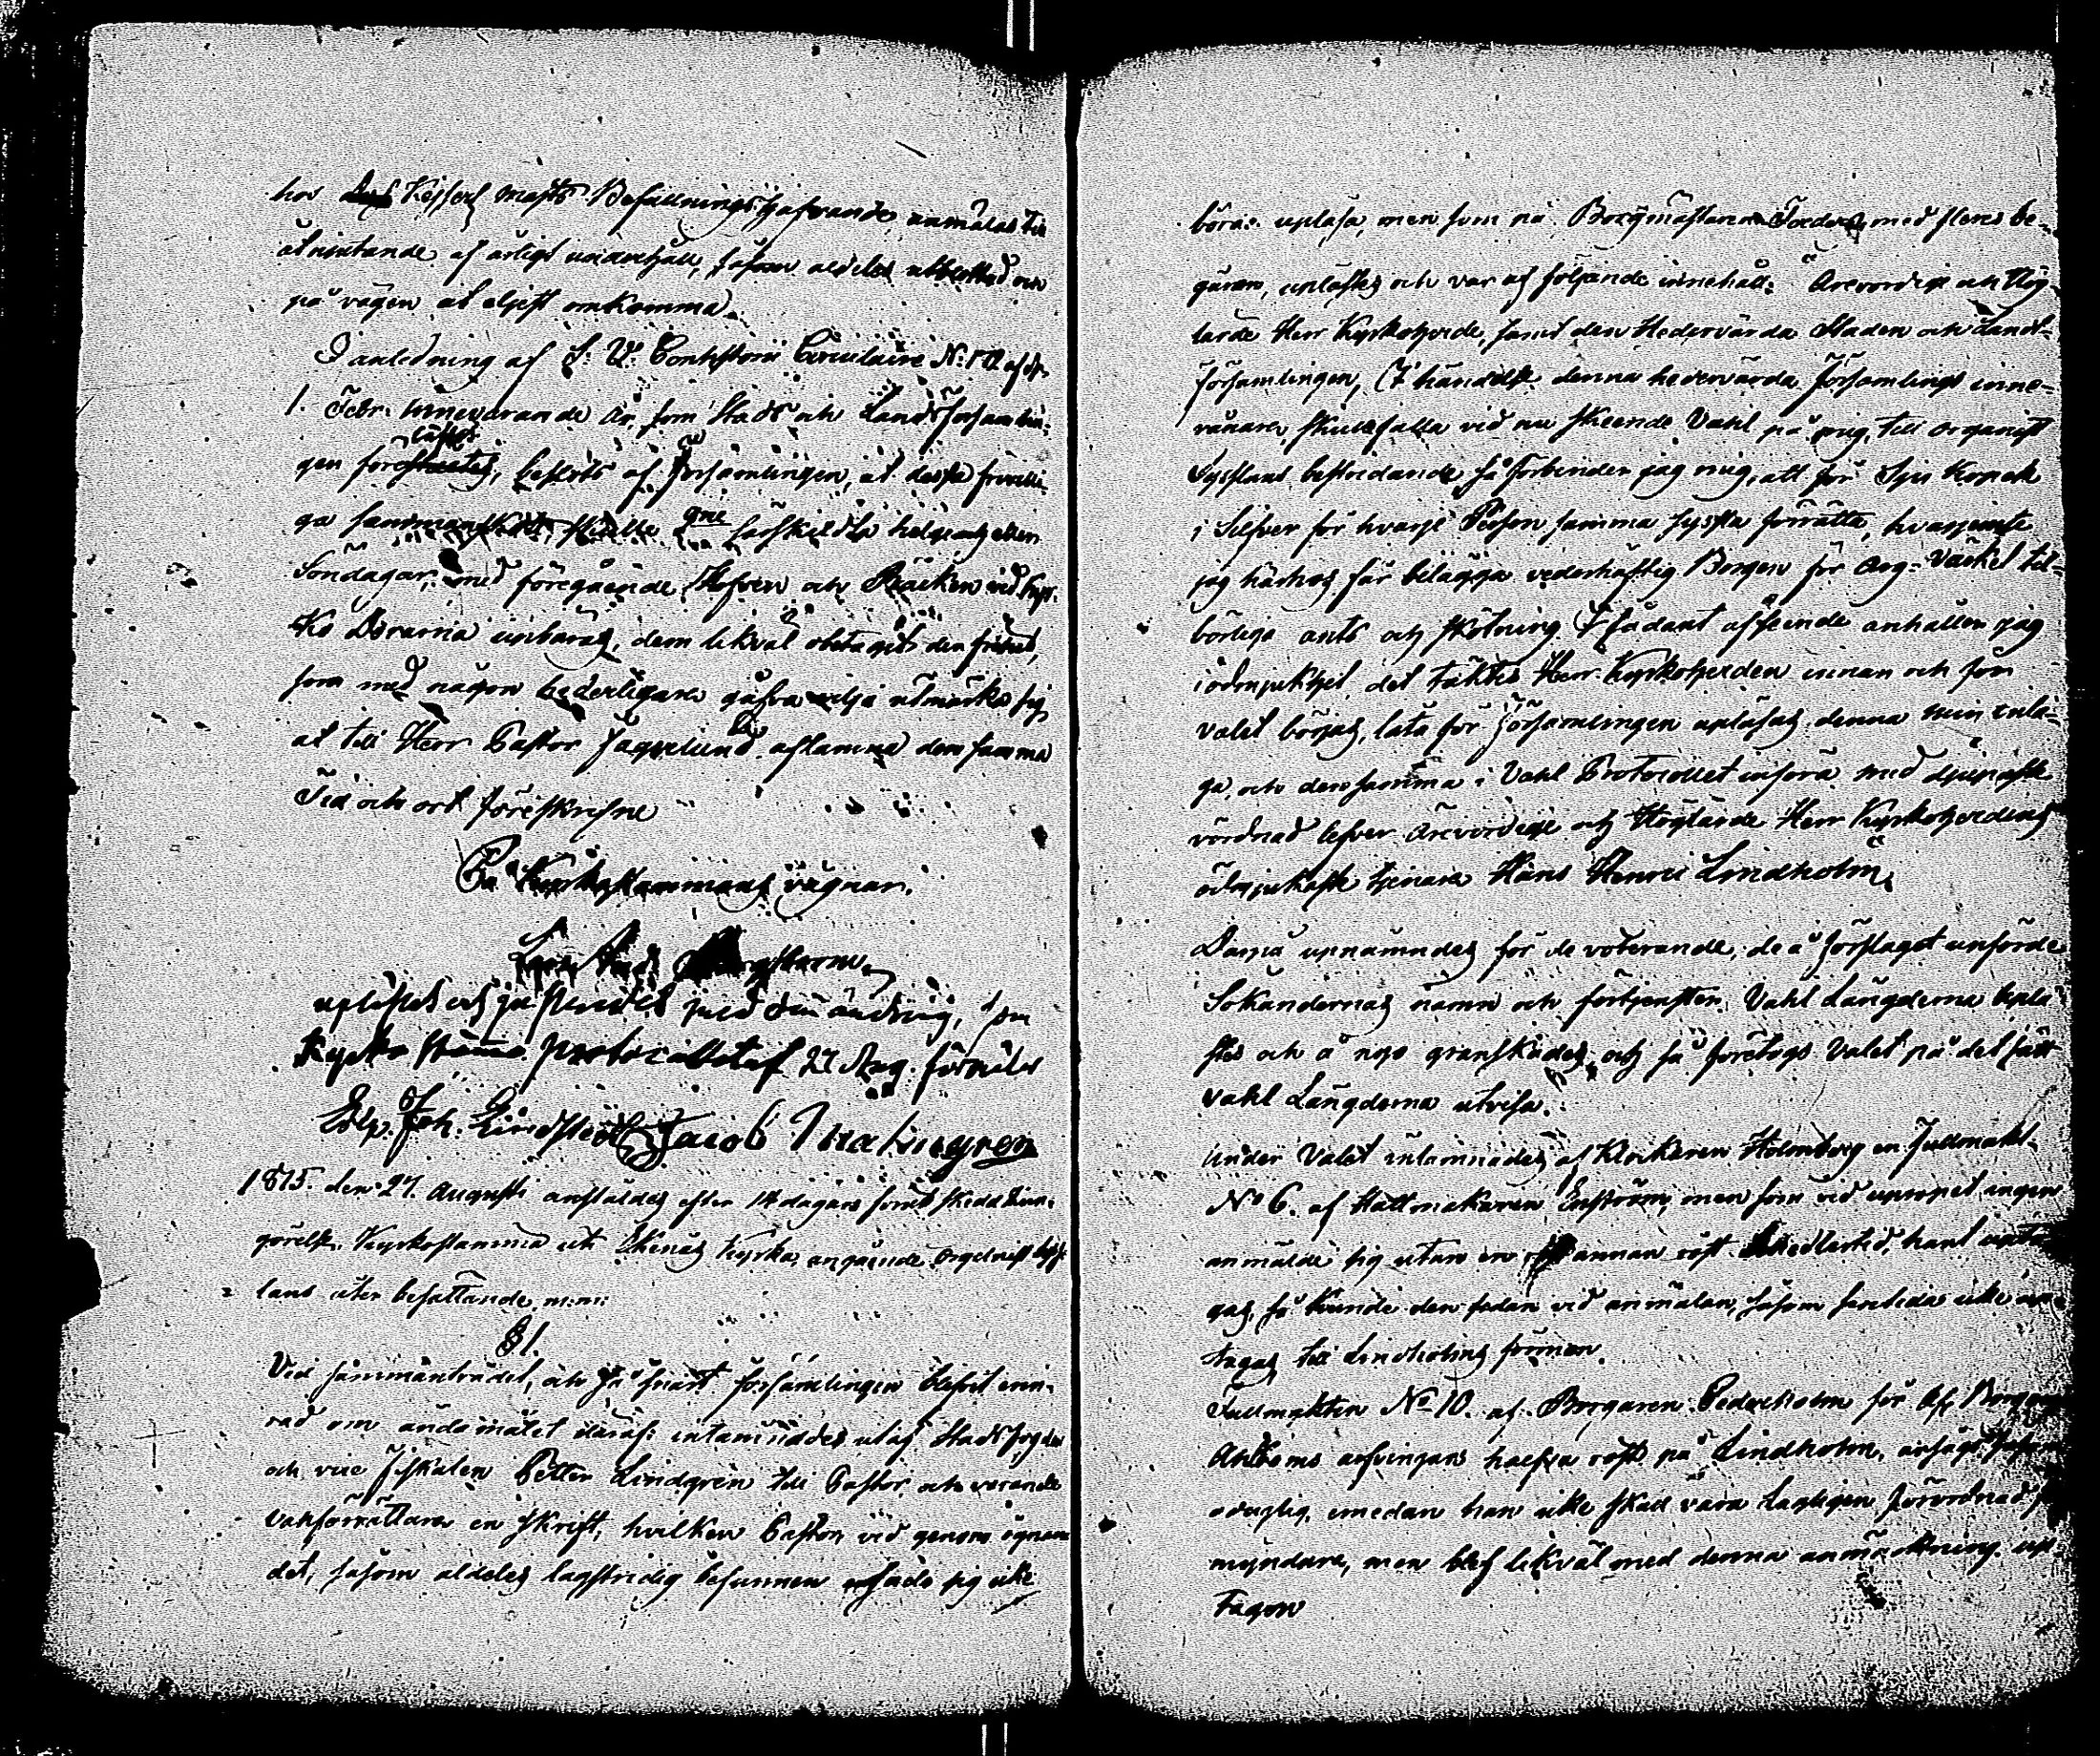 hos Kejserl Majsts Befallningshafvande anmälas til
åtniutande af årligt underhåll, såsom aldeles utblottad och
på vägen at eljest omkomma.
I anledning af L. V. Consistorii Circulaire No: 172 af d.
1. Febr. innevarande år, som Stads och Landsförsamlin-
gen förelästes, beslöts af Församlingen, at dessa frivilli-
ga sammanskott skulle särskildta helgedagar eller
Söndagar, med föregående Hofven och Bäcken vid Kyr-
ko Dörarna upbäras, dem likväl obetagit den frihet,
som med någon hederligare gåfva vilja utmärka sig
at till Herr Pastor Fagerlund aflämna den samma
Tid och ort föreskrefne
På Kyrkostämmans vägnar.
upläst och justerades med den ändring, som
Kyrko stämmo protocollet af 27 Aug. förmäler
Joh. Lindstedt Jacob Malmgren
1815. den 27. Augusti anstäldes efter 14 dagars förut skedd kun-
görelse Kyrkostämma uti Ekenäs Kyrka, angående Orgelnist syss-
lans åter besättande m:m:
§ 1.
Vid sammanträdet, och så snart församlingen blifvit erin-
rad om ändamålet däraf: inlämnades utaf Stadsfogden
och vice Fiskalen Petter Lindgren till Pastor och varande
valförrättare en skrift, hvilken Pastor vid genom ögnan-
det, såsom aldeles lagstridig befunnen ansåde sig icke
böra upläsa, men som på Borgmästaren med fleres be-
gäran, uplästes och var af följande innehåll: Ärevördige och Hög-
lärde Herr Kyrkoherde, samt den Hedervärda Staden och Lands-
församlingen, I händelse denna hedervärda Församlings inne-
vånare, skulle falla vid nu skeende Vahl på mig, till Organist
Sysslans bestridande så förbinder jag mig, att för Sju Kopek
i Silfver för hvarje Person samma syssla förrätta, hvarjemte
jag härhos får bilägga vederhäftig Borgen för Org-Värket til-
börliga ants och skötning. I sådant afseende anhåller jag
i ödmjukhet, det täktes Herr Kyrkoherden innan och förr
valet börjas, låta för Församlingen upläsas denna min inla-
ga, och densamma i Vahl Protocollet införa med djupaste
vördnad lefver Ärevördige och Höglärde Herr Kyrkoherdens
ödmjukaste tjenare Hans Henric Lindholm.
Dampå upnämndes för de voterande, de å förslaget upförde
Sökandernas namn och förtjenster. Vahl Längderna uplä-
stes och å nyo granskades, och så företogs Valet på det sätt
Vahl Längderna utvisa.
Under Valet inlämnades af Klockaren Holmberg en Fullmakt
No 6. af Hattmakaren Enström, men som vid upropet ingen
anmälde sig utan en annan röst Imedlertid hant
gas, så kunde den sedan vid anmälan, såsom försutten icke an-
tagas till Lindholms förmon.
Fullmakten No 10. af Borgaren Cederholm för Afl. Borgaren
Ahlboms arfvingars halfva röst på Lindholm, ansågs såsom
ogiltig, emedan han icke skall vara Lagligen förordnad för-
myndare, men blef likväl med denna anmärkning up-
tagen